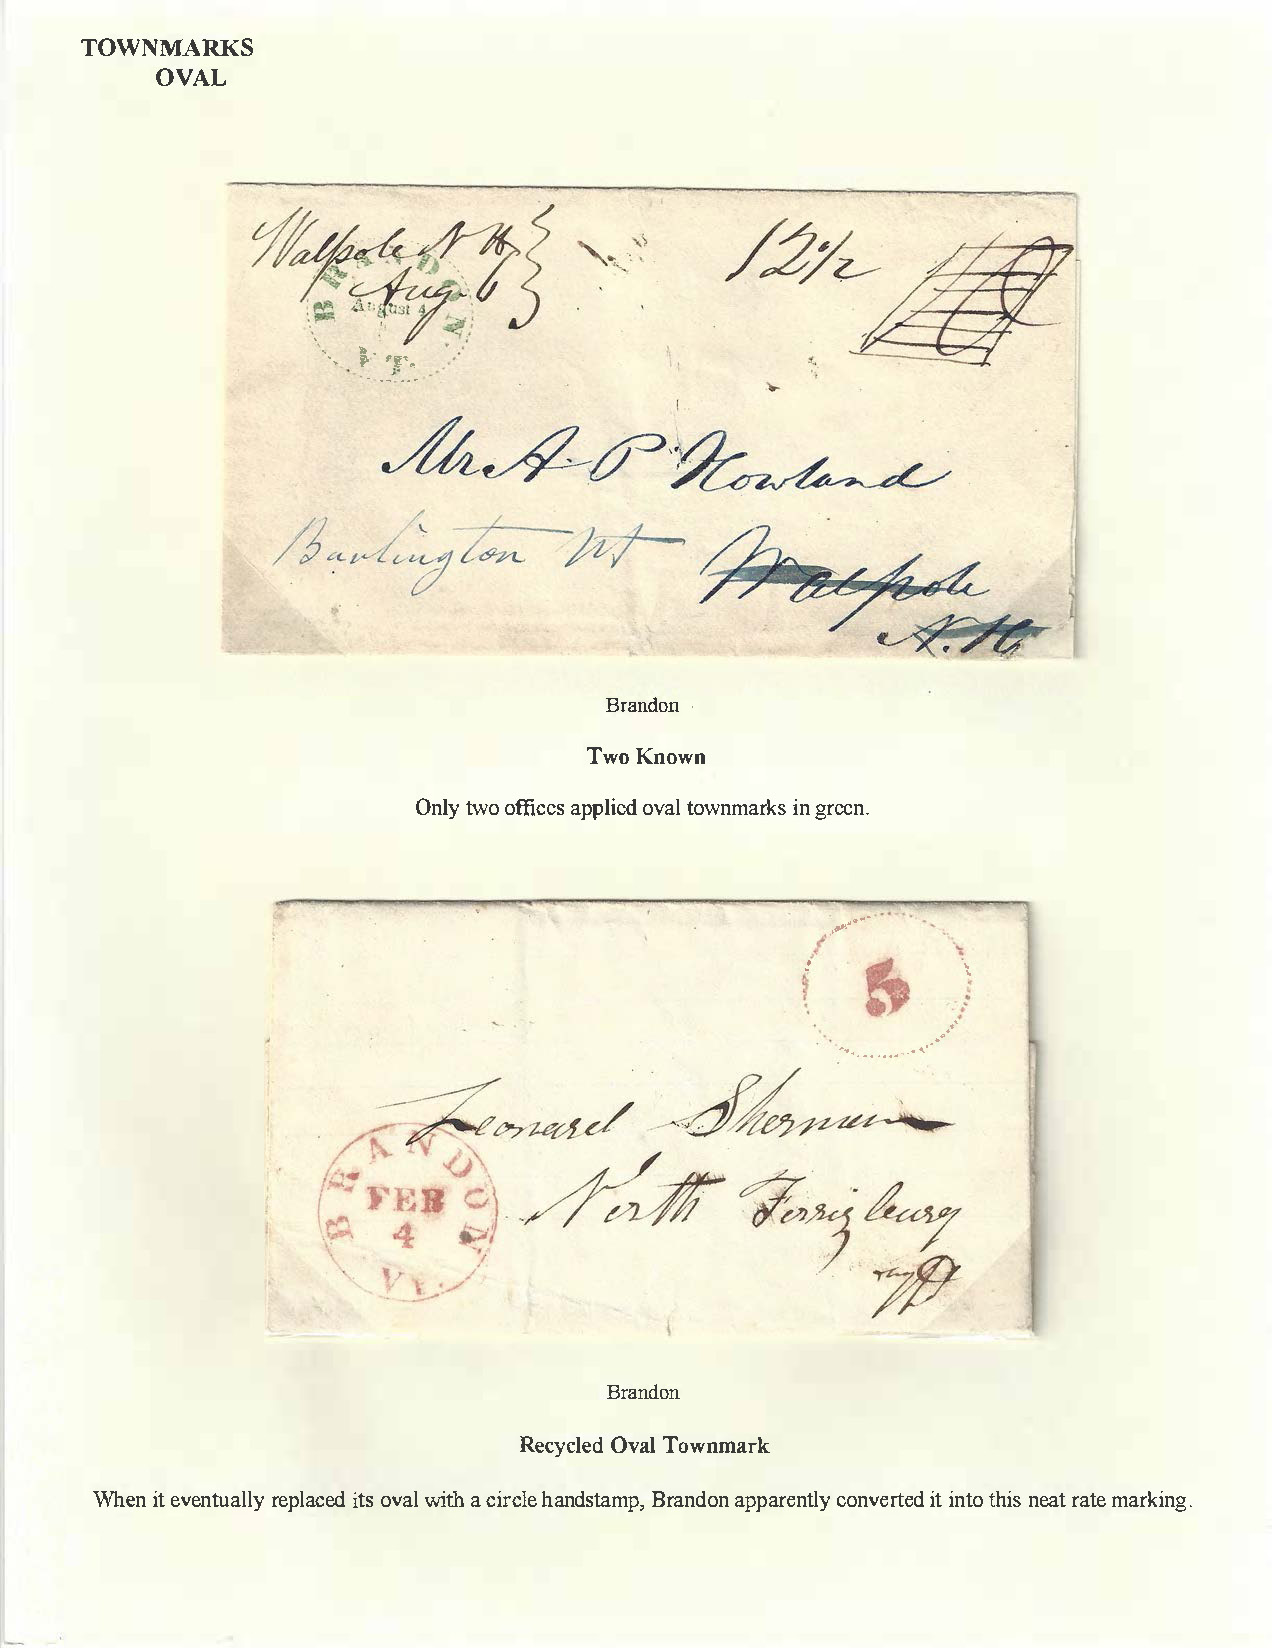 TOWNMARKS
OVAL
Walpole N H
Aug 6
12 1/2
BRANDON.
August 4
VT.
Mr. A. P. Howland
Burlington Vt
Walpole
N. H.
Brandon
Two Known
Only two offices applied oval townmarks in green.
5
Leonard Sherman
BRANDON
FEB
4
VT.
North Ferrisburg
Brandon
Recycled Oval Townmark
When it eventually replaced its oval with a circle handstamp, Brandon apparently converted it into this neat rate marking.